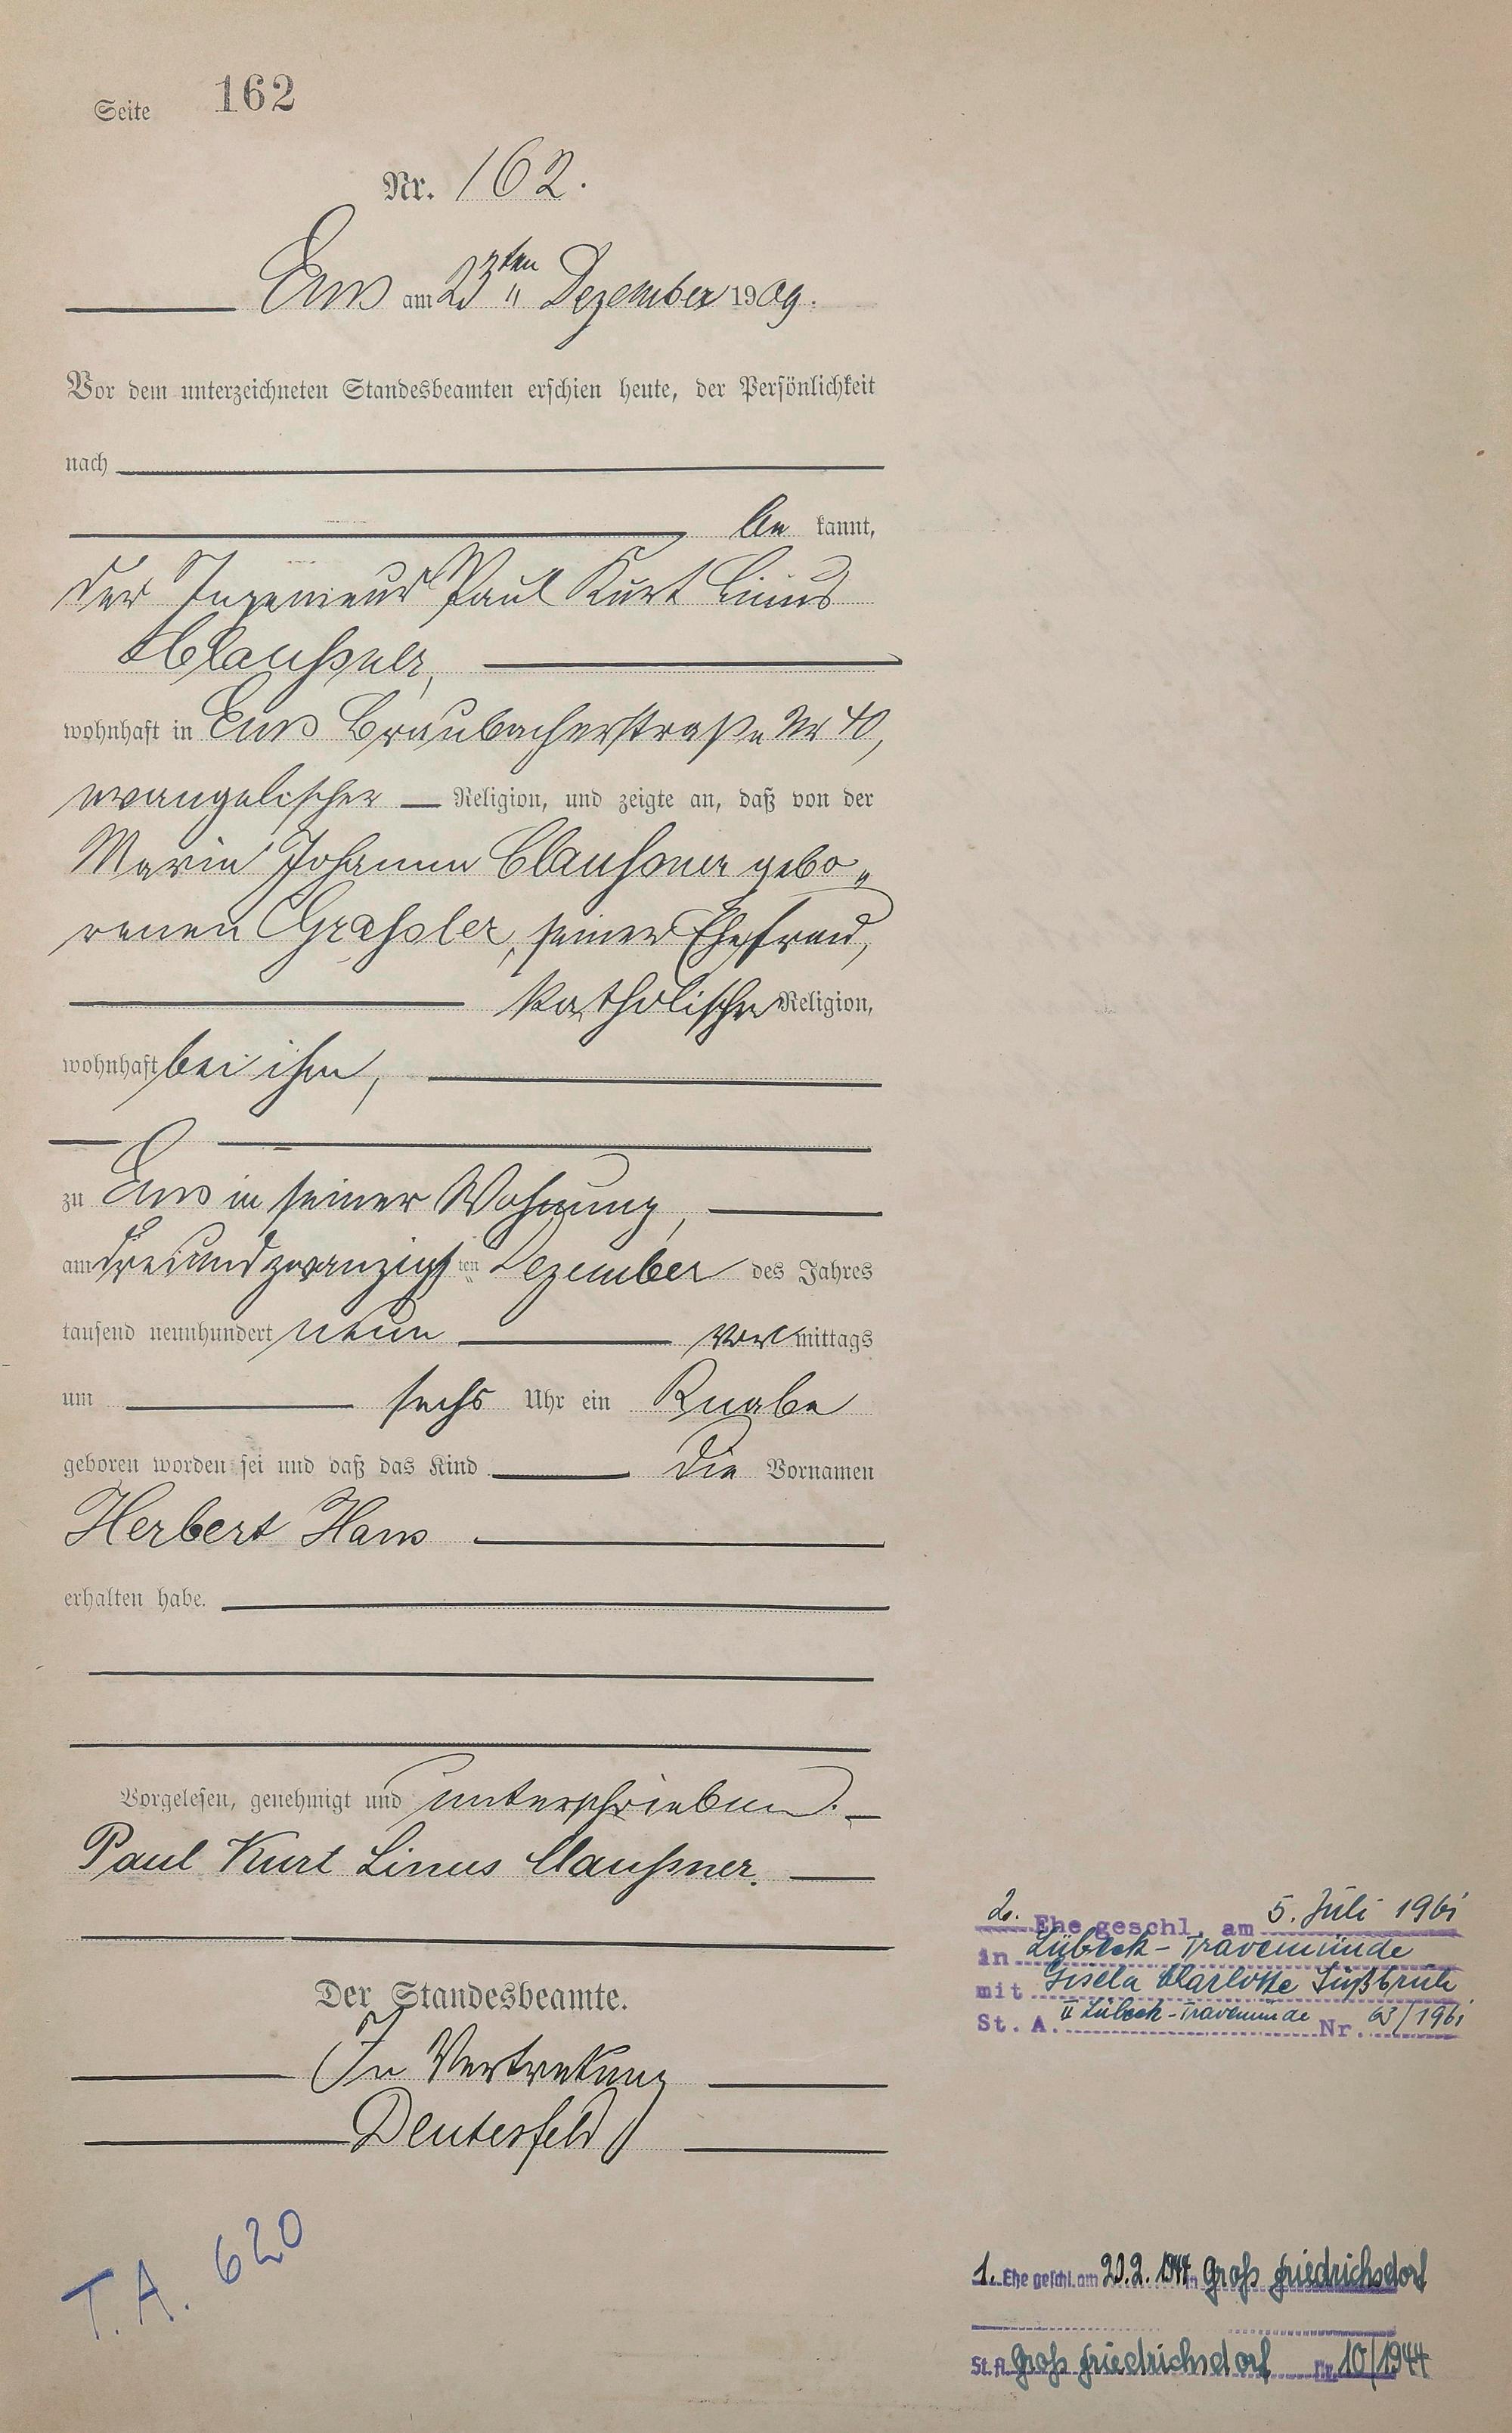 Seite 162
Nr. 162.
Ems am 23ten Dezember 1909.
Vor dem unterzeichneten Standesbeamten erschien heute, der Persönlichkeit
nach
be kannt,
der Ingenieur Paul Kurt Linus
Claußner,
wohnhaft in Ems Braubacherstraße Nr 40,
evangelischer Religion, und zeigte an, daß von der
Maria Johanna Claußner gebo„
renen Graßler, seiner Ehefrau,
katholischer Religion,
wohnhaft bei ihm,
zu Ems in seiner Wohnung,
am dreiundzwanzigsten Dezember des Jahres
tausend neunhundert neun vormittags
um sechs Uhr ein Knabe
geboren worden sei und daß das Kind die Vornamen
Herbert Hans
erhalten habe.
Vorgelesen, genehmigt und unterschrieben.
Paul Kurt Linus Claußner.
Der Standesbeamte.
In Vertretung
Deutesfeld
T. A. 620
2. Ehe geschl. am 5. Juli 1961
in Lübeck-Travemünde
mit Gisela Charlotte Süßbrich
St. A. II Lübeck-Travemünde Nr. 63/1961
1. Ehe geschl. am 20.2.1944 in Groß Friedrichsdorf
St. A. Groß Friedrichsdorf Nr. 10/1944